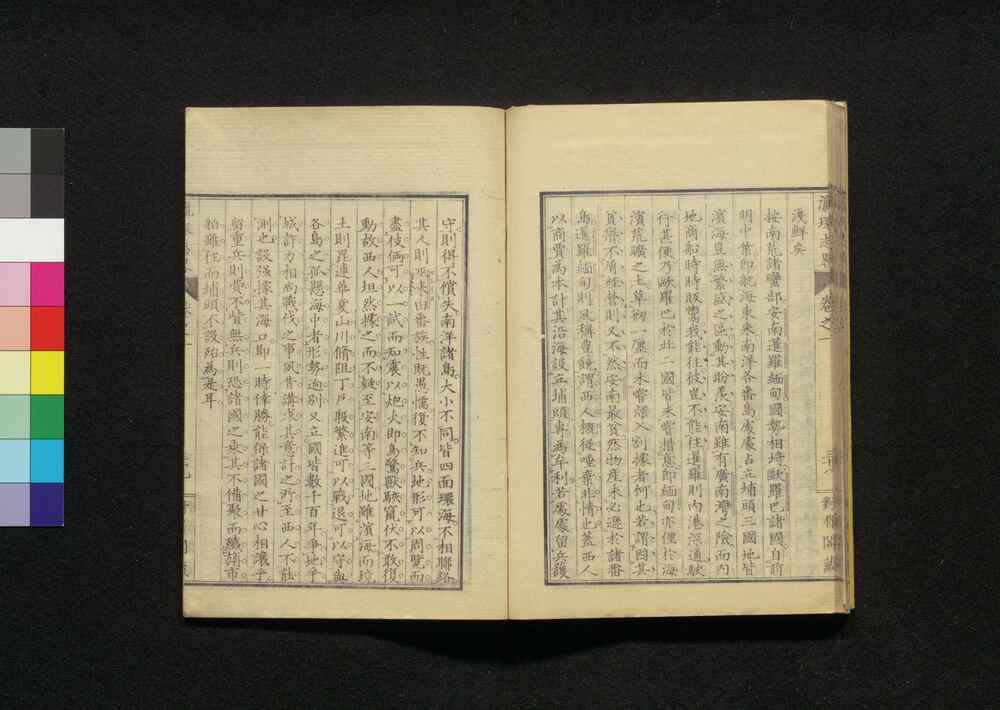 瀛環志畧 卷之一
淺鮮矣
按南荒諸蠻部安南暹羅緬甸國勢相埒歐羅巴諸國自前
明中葉卽航海東來南洋各番島處處占立埔頭三國地皆
濱海豈無繁盛之區動其盼羨安南雖有廣南灣之險而內
地商船時時販鬻我能往彼豈不能往暹羅則內港深通駛
行甚便乃歐羅巴於此二國皆未嘗措意卽緬甸亦僅於海
濱荒曠之土草創一廛而未嘗深入別據者何也若謂因其
貧瘠不屑經營則又不然安南最貧然物產未必遜於諸番
島暹羅緬甸則夙稱豐饒謂西人槪從唾棄非情也蓋西人
以商賈爲本計其沿海設立埔頭專爲牟利若處處留兵護
守則得不償失南洋諸島大小不同皆四面環海不相聯絡
其人則巫來由番族性旣愚懦復不知兵地形可以周覽而
盡伎倆可以一試而知震以炮火卽鳥驚獸駭竄伏不敢復
動故西人坦然據之而不疑至安南等三國地雖濱海而境
土則毘連華夏山川脩阻丁戶殷繁進可以戰退可以守與
各島之孤懸海中者形勢逈別又立國皆數千百年爭地爭
城詐力相尚戰伐之事夙昔講求其意計之所至西人不能
測也設强據其海口卽一時倖勝能保諸國之甘心相讓乎
留重兵則費不貲無兵則恐諸國之乘其不備聚而殲諸市
舶雖往而埔頭不設殆爲是耳